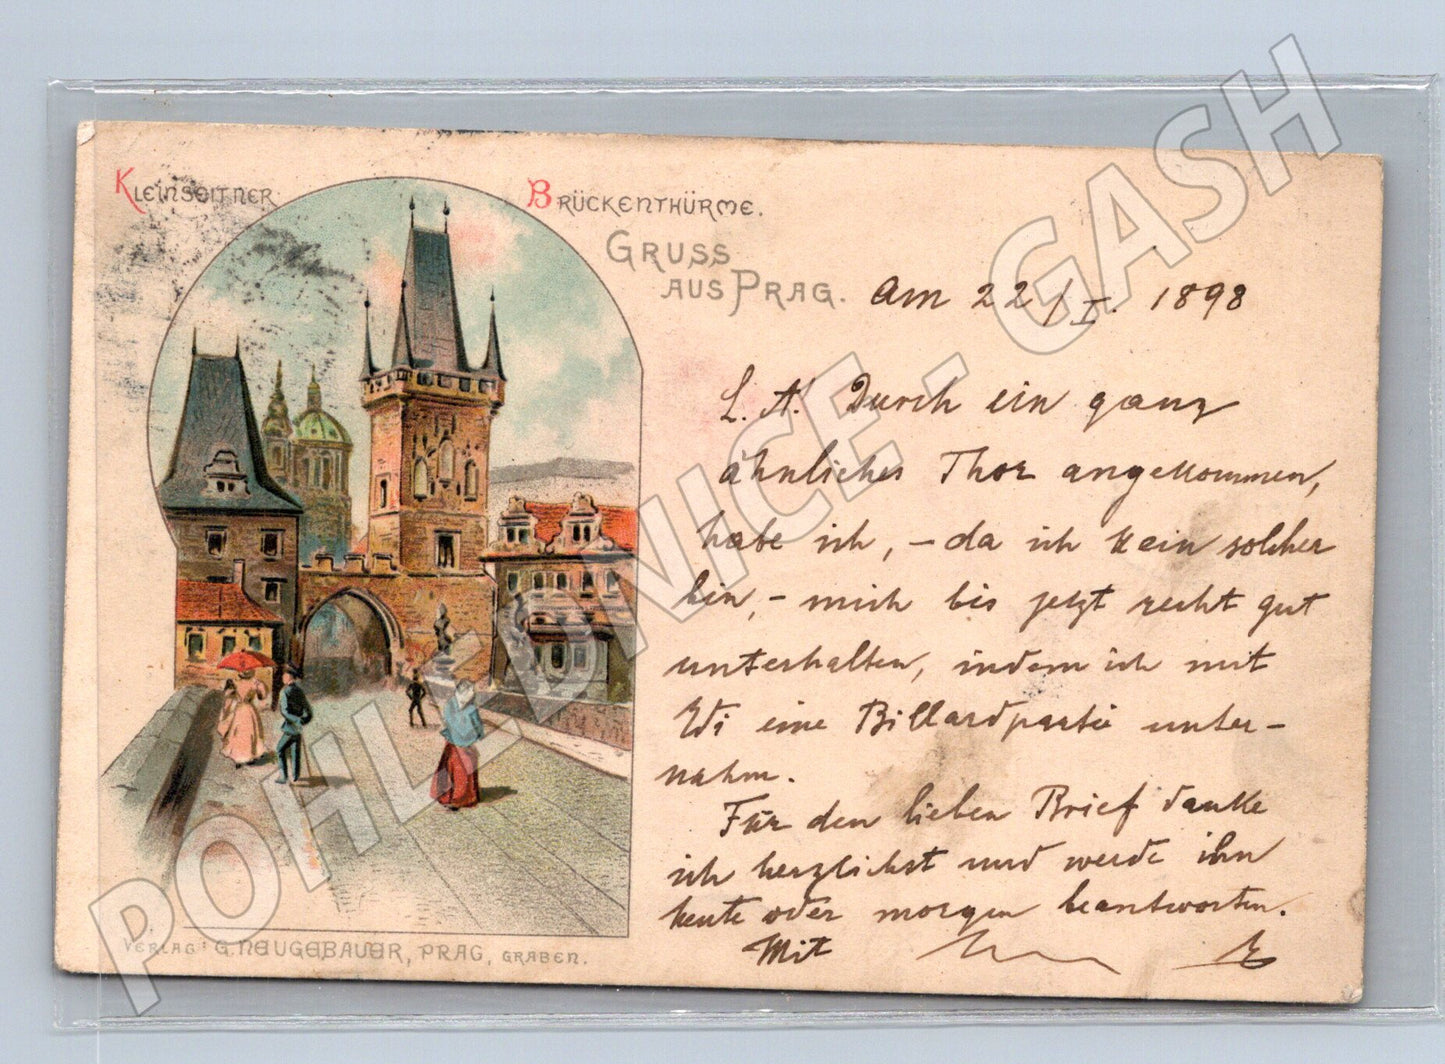 Kleinseitner Brückenthürme.
Gruss
aus Prag. am 22/I. 1898
L. A! Durch ein ganz
ähnliches Thor angekommen,
habe ich, – da ich kein solcher
bin, – mich bis jetzt recht gut
unterhalten, indem ich mit
Edi eine Billardpartie unter-
nahm.
Für den lieben Brief danke
ich herzlichst und werde ihn
heute oder morgen beantworten.
Mit
Verlag: G. Neugebauer, Prag, Graben.
POHLEDNICE - GASH